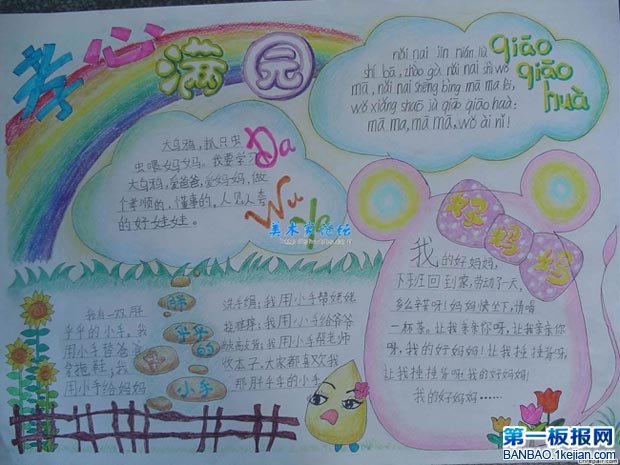 孝心满园
nǎi nai jīn nián liù
shí bā, zhào gù nǎi nai shì wǒ
mā, nǎi nai shēng bìng mā ma lèi,
wǒ xiǎng shuō jù qiāo qiāo huà:
mā ma, mā mā, wǒ ài nǐ!
qiāo
qiāo
huà
大乌鸦,抓只虫
虫喂妈妈。我要学习
大乌鸦,爱爸爸,爱妈妈,做
个孝顺的,懂事的,人见人夸
的好娃娃。
Da
Wu
Ya
美术家论坛
我有一双胖
乎乎的小手。我
用小手替爸爸
拿拖鞋;我
用小手给妈妈
胖
乎乎
的
小手
洗手绢;我用小手帮姥姥
挠痒痒;我用小手给爷爷
我用小手帮老师
收本子,大家都喜欢我
那胖乎乎的小手。
好妈妈
我的好妈妈,
下班回到家,劳动了一天,
多么辛苦呀!妈妈快坐下,请喝
一杯茶。让我亲亲你呀,让我亲亲你
呀,我的好妈妈!让我捶捶背呀,
让我捶捶背呀,我的好妈妈!
我的好妈妈……
第一板报网
BANBAO.1kejian.com